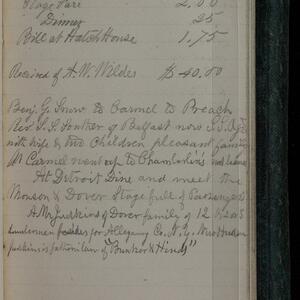 Stage Fare 2,00
Dinner 25
Bill at Hatch House 1,75
Received of A. W. Wildes $ 40.00
Benj. G. Snow to Carmel to Preach
Rev. of Belfast now S.S. Agt
wife & two Children pleasant family
At Carmel went up to Chamberlin's
At Detroit Dine and meet the
Monson & Dover Stage full of Passengers
A Mr Judkins of Dover family of 12
for Allegany Co. N.Y.
Judkins is of "Bunker & Hinds"